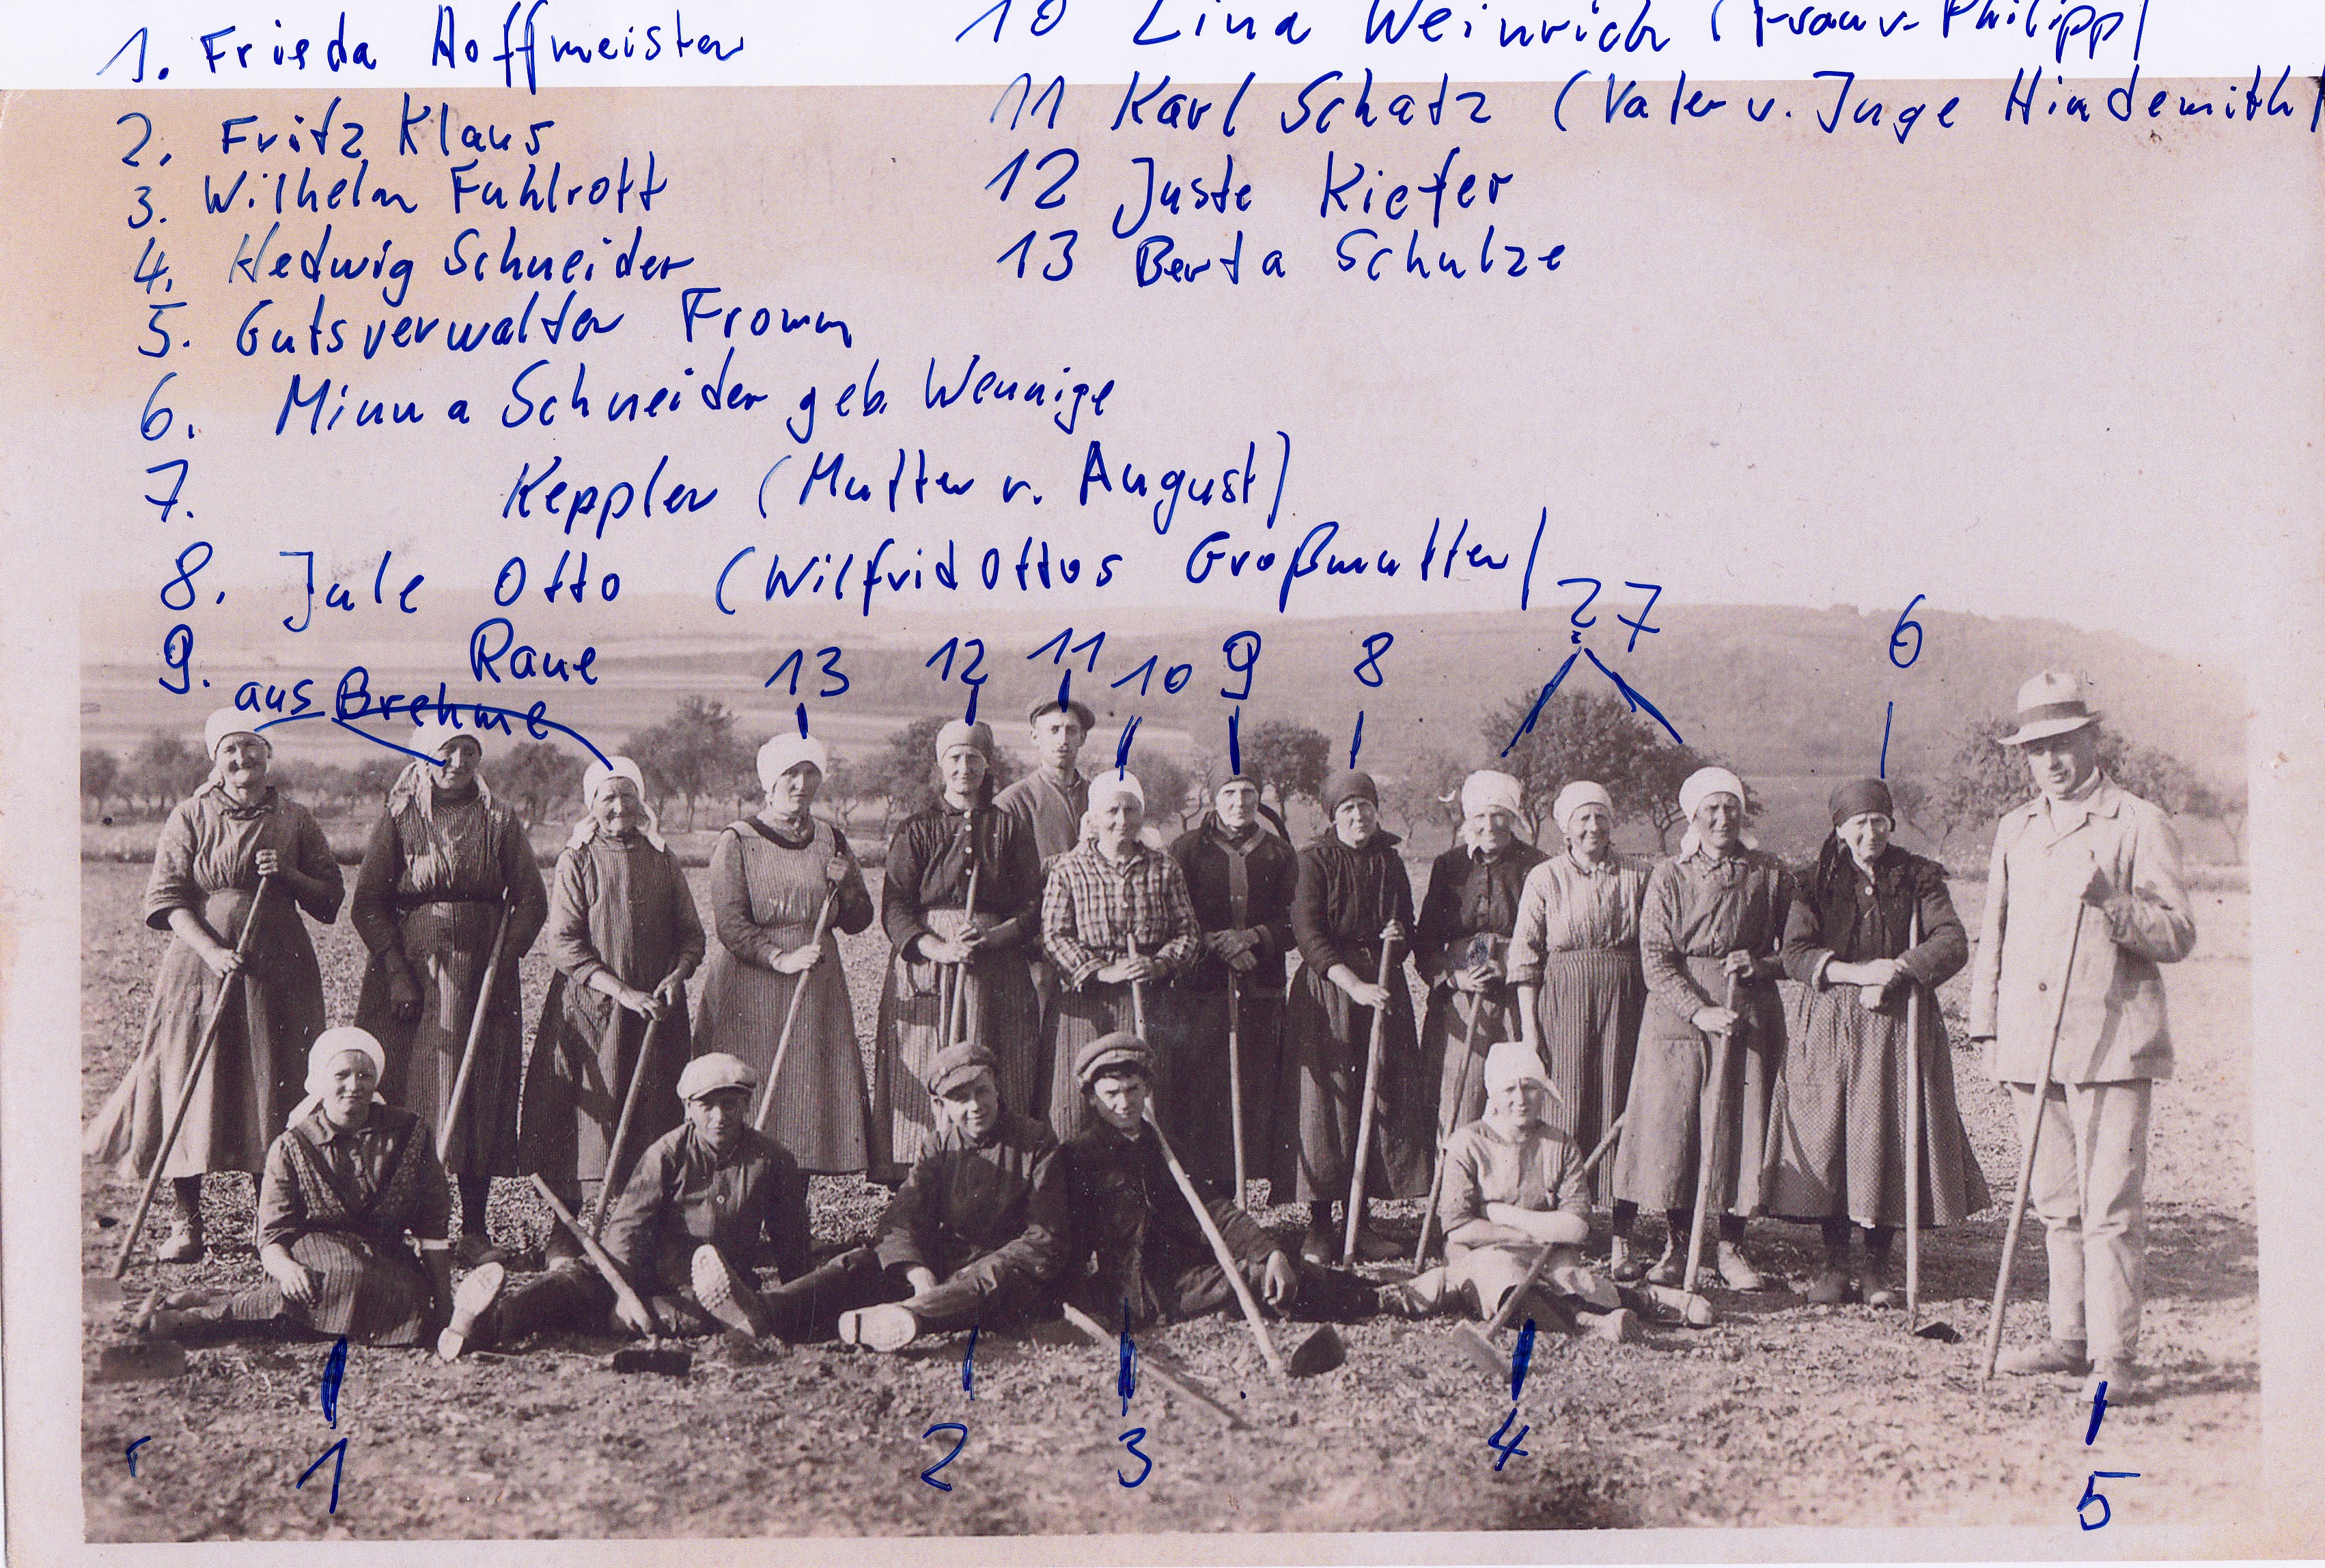 1. Frieda Hoffmeister
2. Fritz Klaus
3. Wilhelm Fuhlrott
4. Hedwig Schneider
5. Gutsverwalter Fromm
6. Minna Schneider geb. Wennige
7. Keppler (Mutter v. August)
8. Jule Otto (Wilfrid Ottos Großmutter)
9. Raue
aus Brehme
10 Lina Weinrich (Frau v. Philipp)
11 Karl Schatz (Vater v. Inge Hindemith)
12 Juste Kiefer
13 Berta Schulze
13 12 11 10 9 8 ? 7 6
1 2 3 4 5